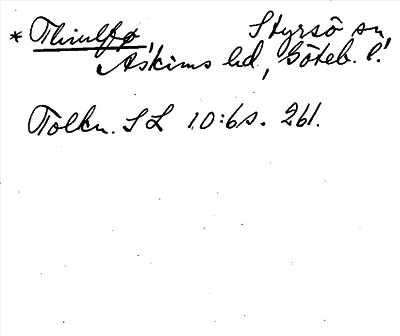 * Thiulfø, Styrsö sn,
Askims hd, Göteb. l.
Tolkn. SL 10:6 s. 261.